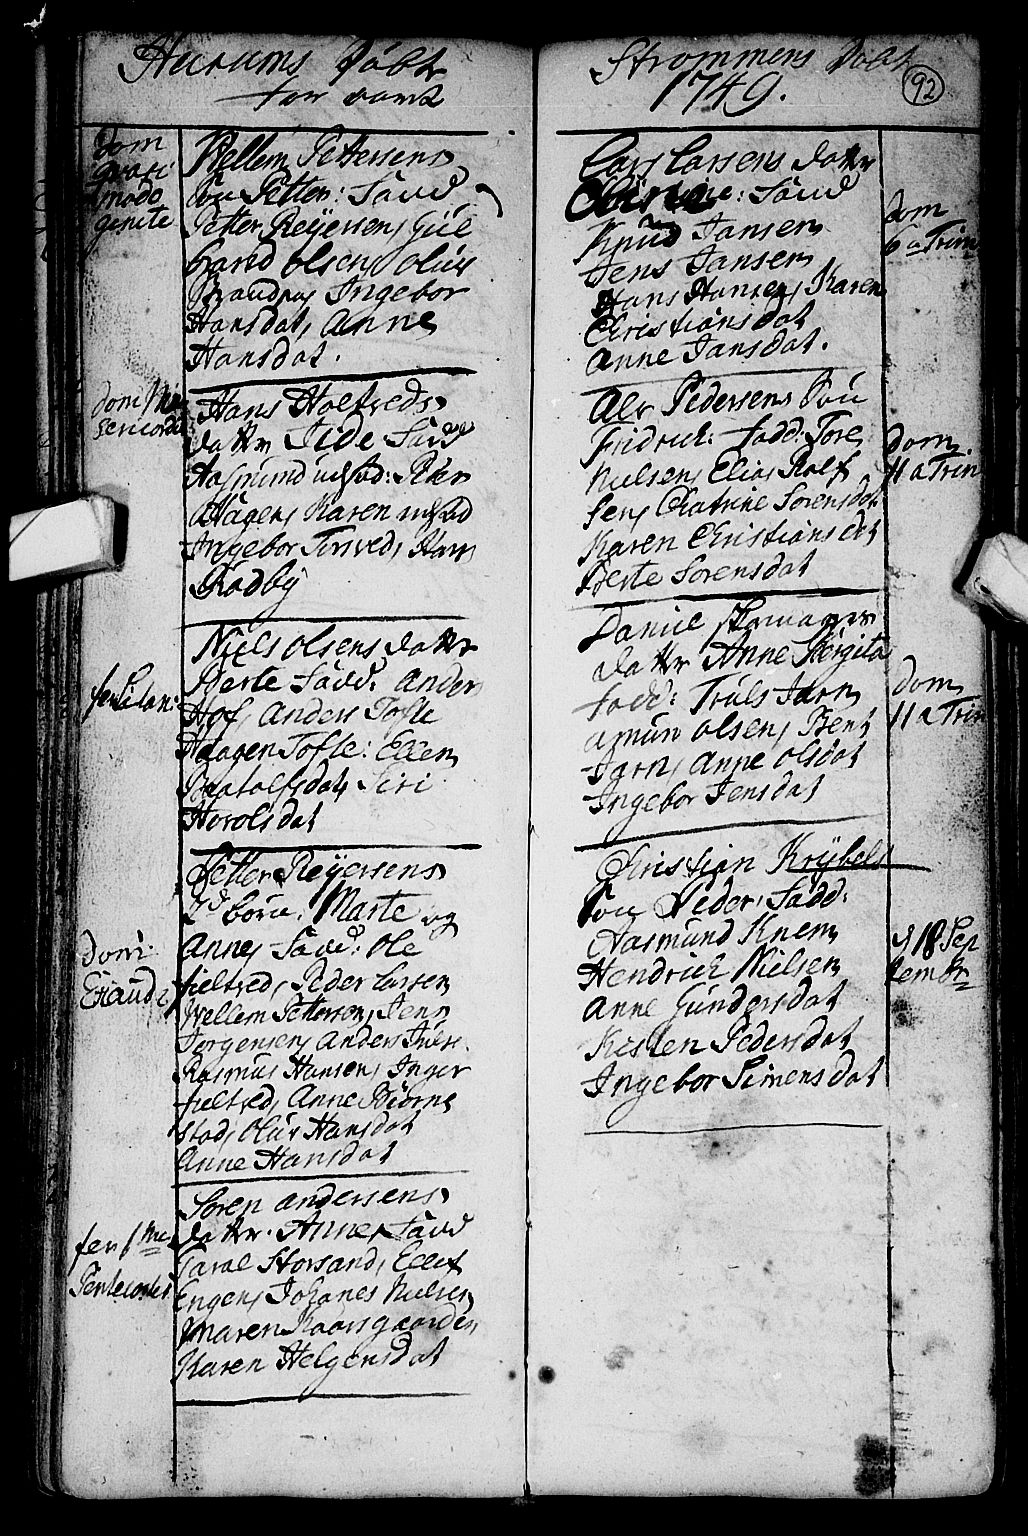 Hurums Døbt
Strømmens Døbt
1749.
92
dom
quasi
mode
genite
Wellem Pettersens
Søn Petter: Fadd
Petter Reyersen, Gul
brand Olsen, Oliv
Ingebor
Hansdat, Anne
Hansdat.
dom Mi
sericordi
Hans Holtveds
datter Fadd
Aasmund
Hagen, Karen
Ingebor Tveved, Karn
Rødby
fer
Niels Olsens datter
Berte Fadd: Anders
Hof, Anders Tofte
Haagen Tofte: Ellen
Siri
Horolsdat
dom
Exaudi
Petter Reyersens
2de børn: Marte og
Anne, Fadd: Ole
fieltved, Peder Larsen
Wellem Petterson, Jens
Jørgensen, Anders
Rasmus Hansen, Inger
fieltved, Anne Biørne
stad, Oliv Hansdat
Anne Hansdat
fer 1me
Pentecostes
Søren Andersens
datter. Anne, Fadd
Storsand, Ellef
Engen, Johanes Nielsen
Maren Kaarsgaarden
Karen Helgensdat
Lars Larsens datter
Fadd
Knud Jansen
Jens Jansen
Hans Hansen, Karen
Christiansdat
Anne Jansdat.
dom
6 a Trin
Alv Pedersens Søn
Fridrich: Fadd: Tore
Nielsen, Elias Rolf
sen, Chatrine Sørensdat
Karen Christiansdat
Berte Sørensdat
dom
11 a Trin
Daniel Skomager
datter Anne Børgita
Fadd: Truls Jarn
Amun Olsen, Bent
Jarn, Anne Olsdat
Ingebor Jensdat
dom
11 a Trin
Christian Krybels
Søn Peder, Fadd:
Aasmund Knem
Hendrich Nielsen
Anne Gundersdat
Kesten Pedersdat
Ingebor Simensdat
d 18 Sep
tembr